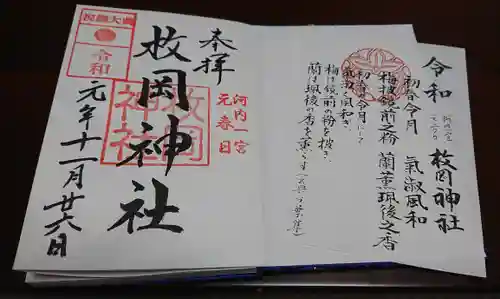 奉拝
河内一宮
元春日
枚岡神社
枚岡
神社
令和
元年十一月廿六日
令和
初春令月 氣淑風和
梅披鏡前之粉 蘭薫珮後之香
河内一宮
枚岡神社
初春令月にして
氣淑く風和ぎ
梅は鏡前の粉を披き
蘭は珮後の香を薫らす